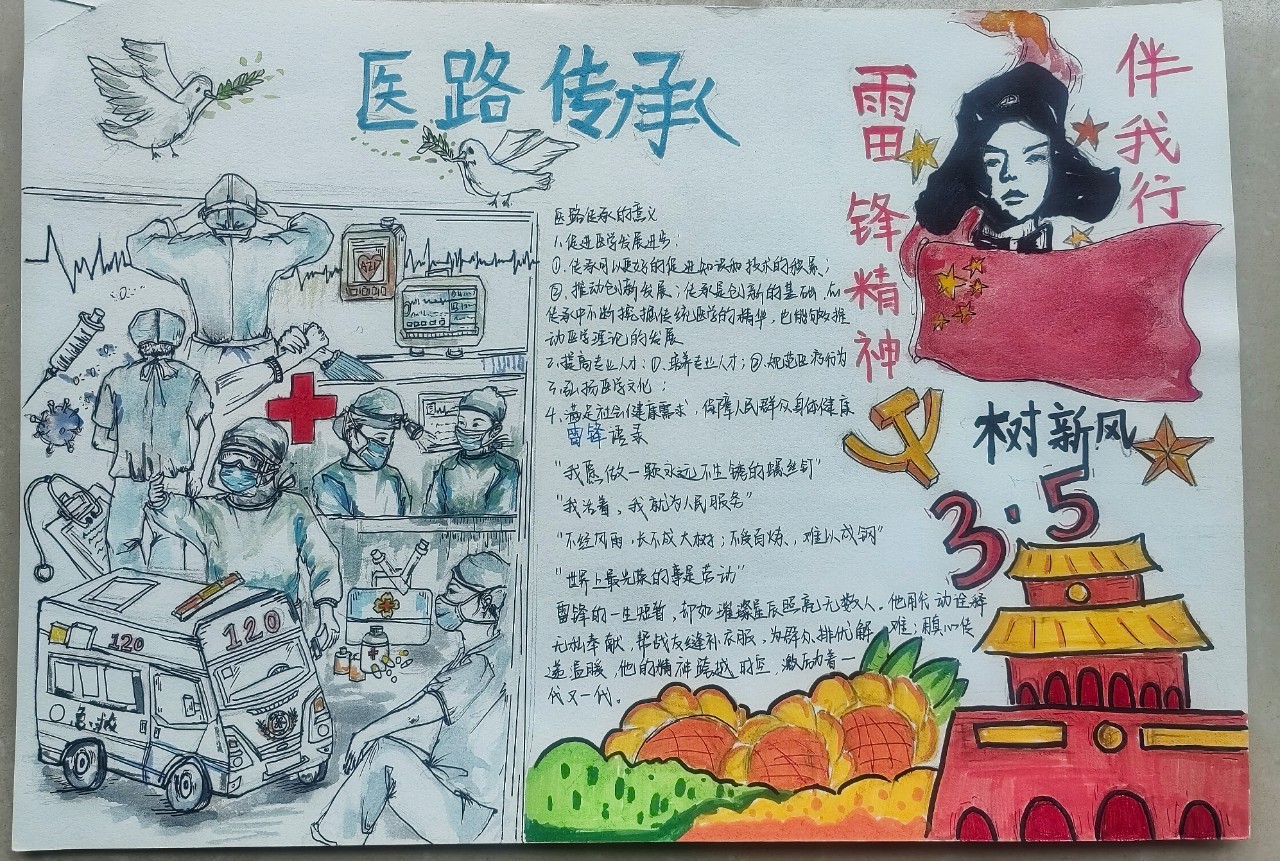 医路传承
雷锋精神
伴我行
医路传承的意义
1.促进医学发展进步:
①.传承可以更好的促进知识和技术的积累;
②.推动创新发展;传承是创新的基础,在
传承中不断挖掘传统医学的精华,也能够推
动医学理论的发展
2.提高专业人才:①.培养专业人才;②.规范医疗行为
3.弘扬医学文化;
4.满足社会健康需求,保障人民群众身体健康
雷锋语录
"我愿做一颗永远不生锈的螺丝钉"
"我活着,我就为人民服务"
"不经风雨,长不成大树;不受百炼,难以成钢"
"世界上最光荣的事是劳动"
雷锋的一生短暂,却如璀璨星辰照亮无数人。他用行动诠释
无私奉献,帮战友缝补衣服,为群众排忧解难,真心传
递温暖,他的精神跨越时空,激励着一
代又一代。
树新风
3·5
120
120